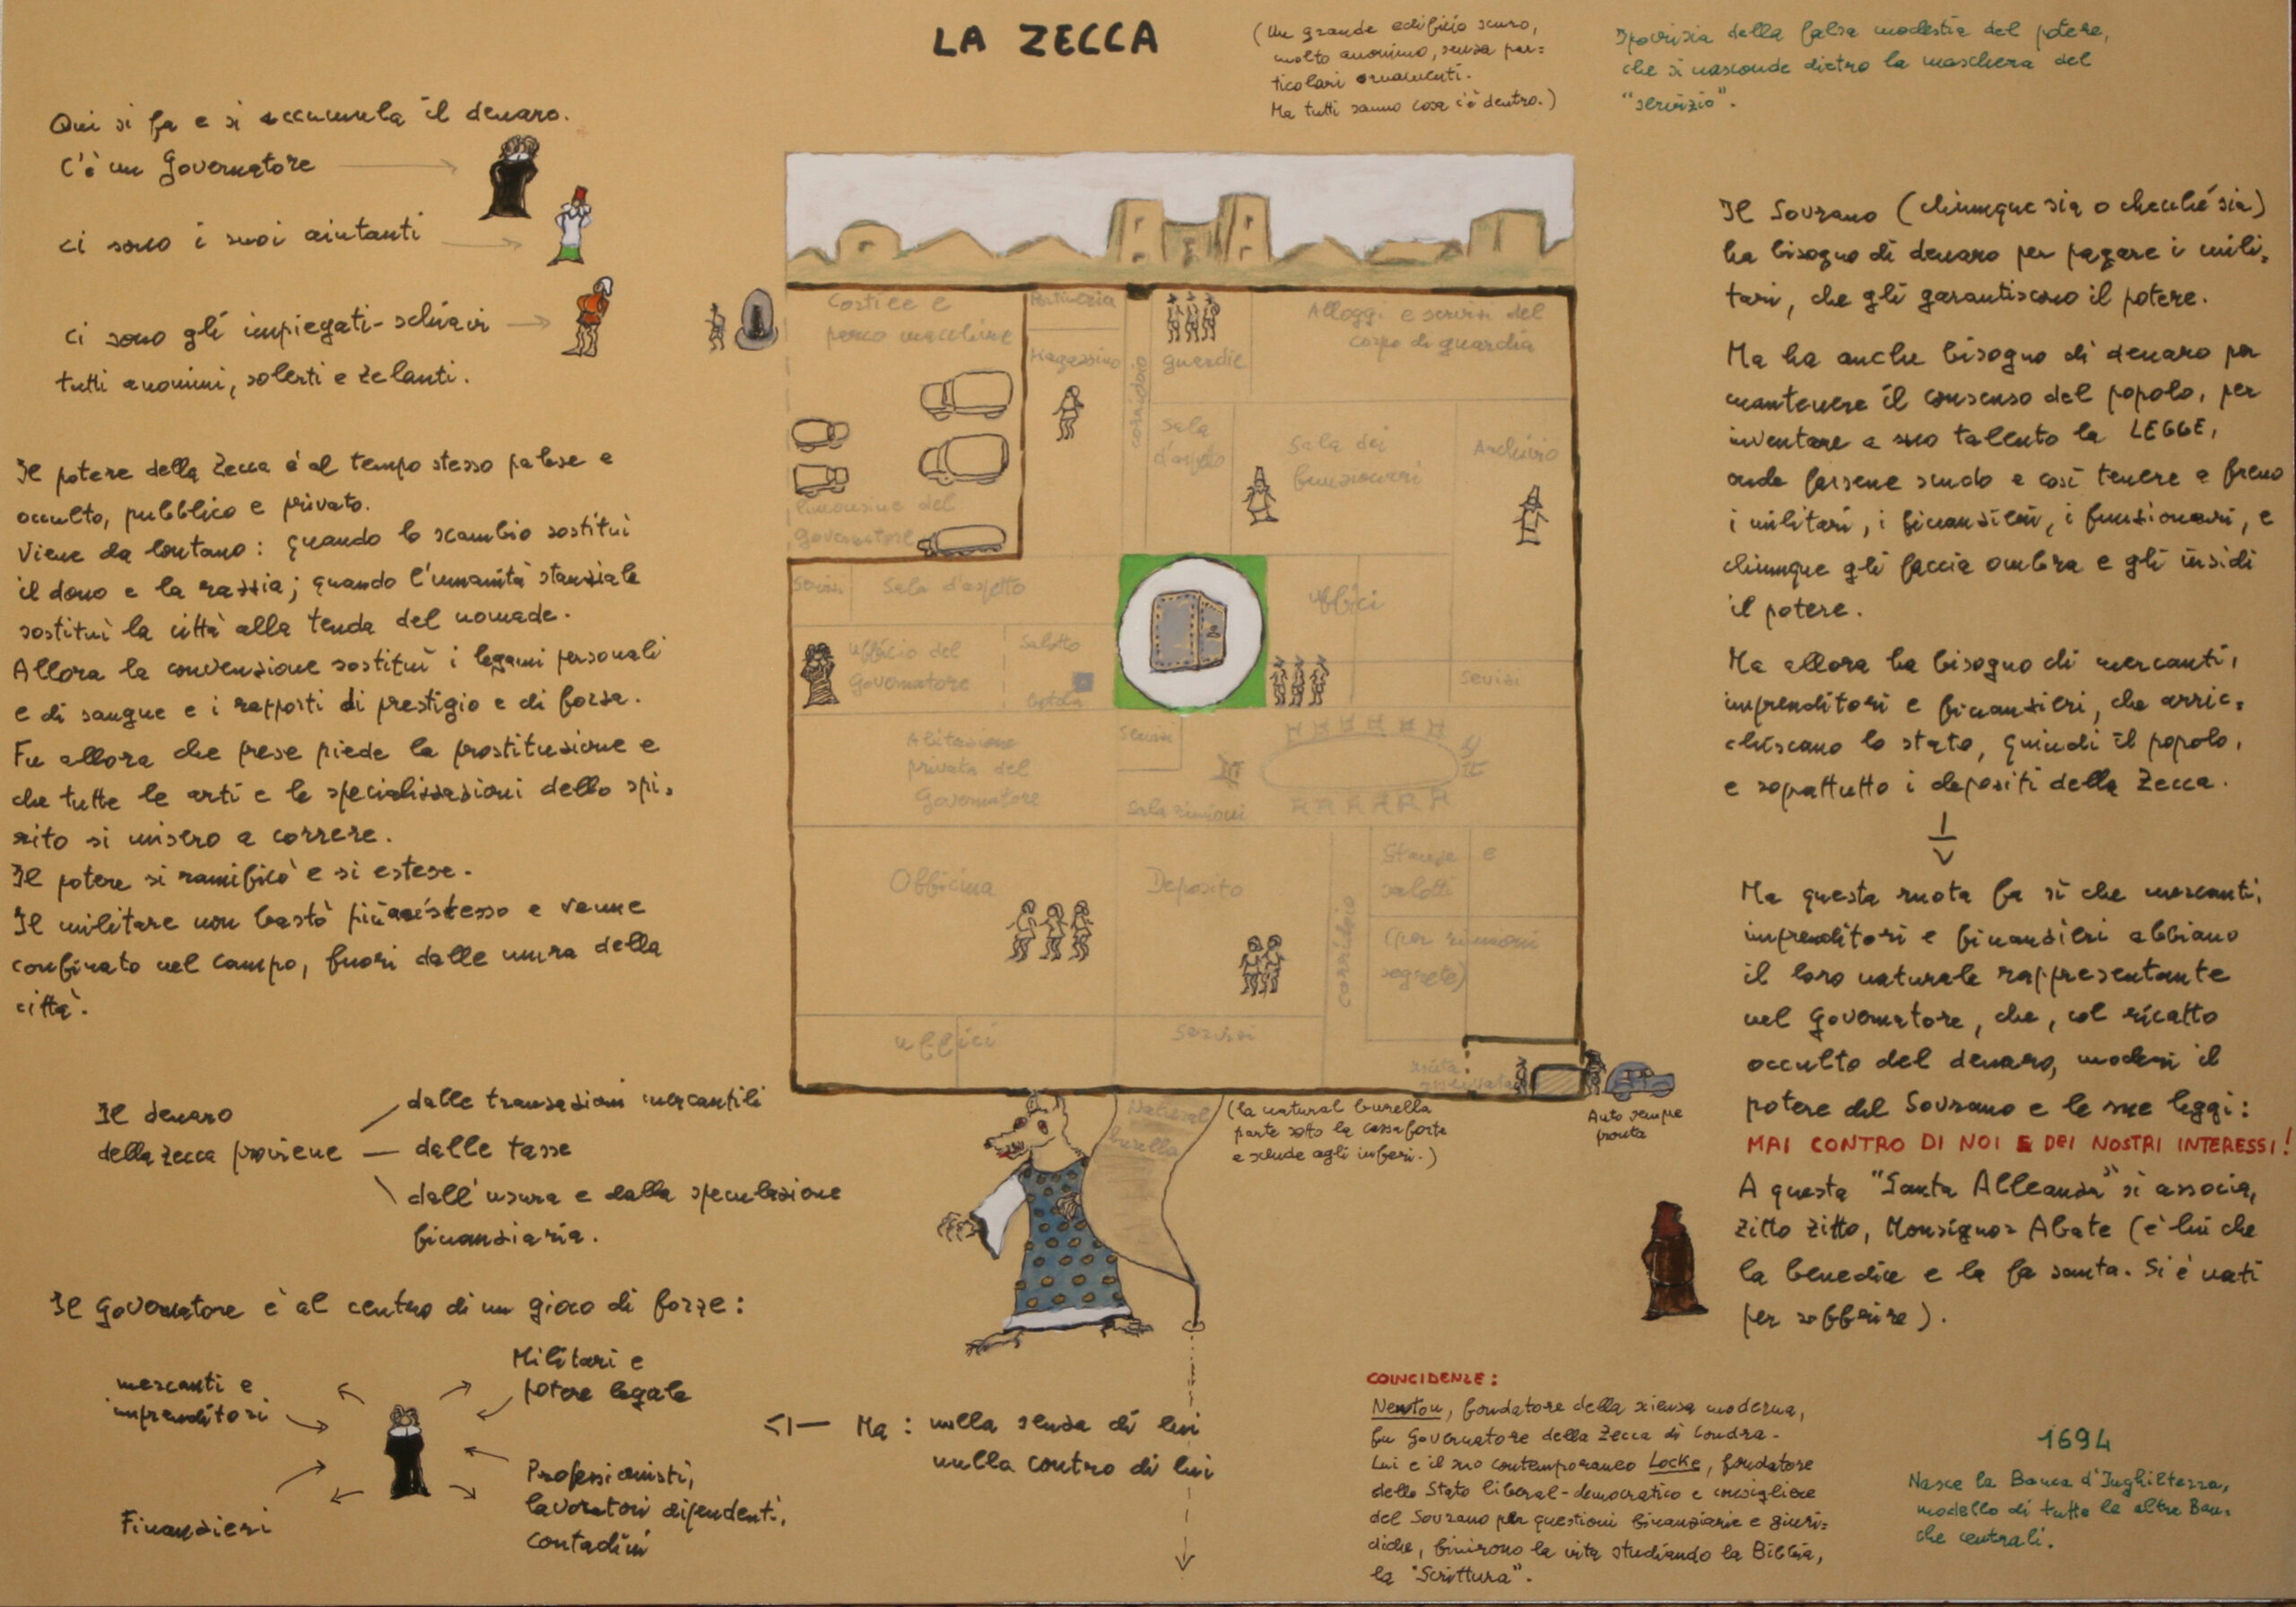 LA ZECCA
(Un grande edificio scuro,
molto anonimo, senza par=
ticolari ornamenti.
Ma tutti sanno cosa c'è dentro.)
Ipocrisia della falsa modestia del potere,
che si nasconde dietro la maschera del
"servizio".
Qui si fa e si accumula il denaro.
C'è un Governatore
ci sono i suoi aiutanti
ci sono gli impiegati-schiavi
tutti anonimi, solerti e zelanti.
Il potere della Zecca è al tempo stesso palese e
occulto, pubblico e privato.
Viene da lontano: quando lo scambio sostituì
il dono e la razzia; quando l'umanità stanziale
sostituì la città alla tenda del nomade.
Allora la convenzione sostituì i legami personali
e di sangue e i rapporti di prestigio e di forza.
Fu allora che prese piede la prostituzione e
che tutte le arti e le specializzazioni dello spi=
rito si misero a correre.
Il potere si ramificò e si estese.
Il militare non bastò più a sé stesso e venne
confinato nel campo, fuori dalle mura della
città.
Il denaro
della Zecca proviene
dalle transazioni mercantili
dalle tasse
dall'usura e dalla speculazione
finanziaria.
Il Governatore è al centro di un gioco di forze:
mercanti e
imprenditori
Militari e
potere legale
Finanzieri
Professionisti,
lavoratori dipendenti,
contadini
Ma: nulla senza di lui
nulla contro di lui
Cortile e
parco macchine
limousine del
governatore
Portineria
Magazzino
corridoio
guardie
Alloggi e servizi del
corpo di guardia
Sala
d'aspetto
Sala dei
funzionari
Archivio
Servizi
Sala d'aspetto
Uffici
Ufficio del
Governatore
Salotto
Servizi
Abitazione
privata del
Governatore
Servizi
Sala riunioni
Officina
Deposito
corridoio
Stanze e
salotti
(per riunioni
segrete)
Uffici
Servizi
Natural
burella
(la natural burella
parte sotto la cassaforte
e scende agli inferi.)
Auto sempre
pronta
Il Sovrano (chiunque sia o checché sia)
ha bisogno di denaro per pagare i mili=
tari, che gli garantiscono il potere.
Ma ha anche bisogno di denaro per
mantenere il consenso del popolo, per
inventare a suo talento la LEGGE,
onde farsene scudo e così tenere a freno
i militari, i finanzieri, i funzionari, e
chiunque gli faccia ombra e gli insidi
il potere.
Ma allora ha bisogno di mercanti,
imprenditori e finanzieri, che arric=
chiscano lo stato, quindi il popolo,
e soprattutto i depositi della Zecca.
Ma questa ruota fa sì che mercanti,
imprenditori e finanzieri abbiano
il loro naturale rappresentante
nel Governatore, che, col ricatto
occulto del denaro, moderi il
potere del Sovrano e le sue leggi:
MAI CONTRO DI NOI E DEI NOSTRI INTERESSI!
A questa "Santa Alleanza" si associa,
zitto zitto, Monsignor Abate (è lui che
la benedice e la fa santa. Si è nati
per soffrire).
COINCIDENZE:
Newton, fondatore della scienza moderna,
fu Governatore della Zecca di Londra.
Lui e il suo contemporaneo Locke, fondatore
dello Stato liberal-democratico e consigliere
del Sovrano per questioni finanziarie e giuri=
diche, finirono la vita studiando la Bibbia,
la "Scrittura".
1694
Nasce la Banca d'Inghilterra,
modello di tutte le altre Ban=
che centrali.